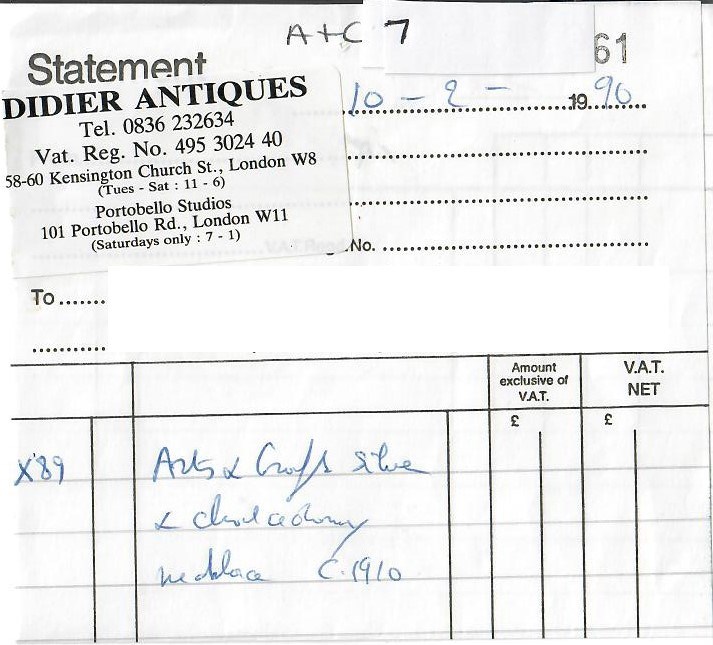 A+C 7
61
Statement
DIDIER ANTIQUES
Tel. 0836 232634
Vat. Reg. No. 495 3024 40
58-60 Kensington Church St., London W8
(Tues - Sat : 11 - 6)
Portobello Studios
101 Portobello Rd., London W11
(Saturdays only : 7 - 1)
10 - 2 - 1990
No.
To
Amount exclusive of V.A.T.
V.A.T. NET
£ £
X89 Arts & Crafts silver
& chalcedony
necklace C.1910